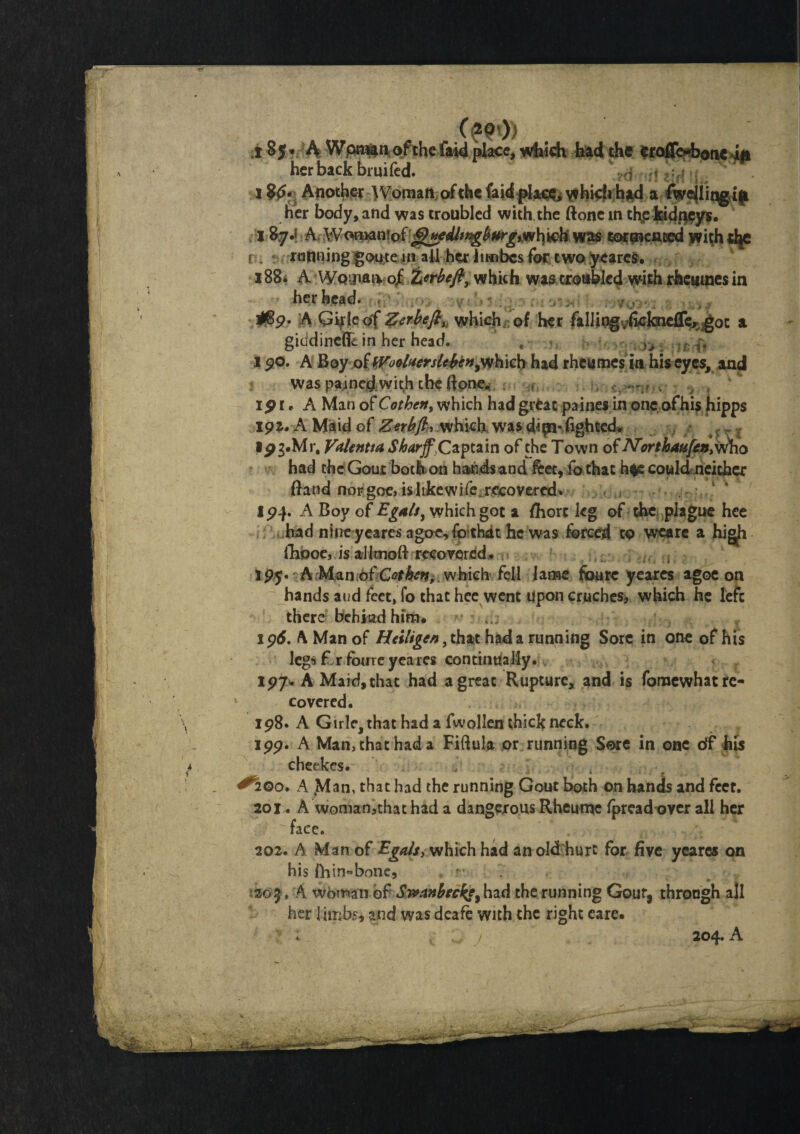 (20)
185. A Woman of the ſaid place, which had the croſſe-bone in
her back bruiſed.
186. Another Woman of the ſaid place, which had a ſwelling in
her body, and was troubled with the ſtone in the kidneys.
187. A Woman of Quedlingburg, which was tormented with the
running goute in all her limbes for two yeares.
188. A Woman of Zerbeſt, which was troubled with rheumes in
her head.
189. A Girle of Zerbeſt, which of her falling-ſickneſſe, got a
giddineſſe in her head.
190. A Boy of Wooluersleben, which had rheumes in his eyes, and
was pained with the ſtone.
191. A Man of Cothen, which had great paines in one of his hipps
192. A Maid of Zerbſt, which was dim-ſighted.
193. Mr. Valentia Sharff Captain of the Town of Northauſen, who
had the Gout both on hands and feet, ſo that he could neither
ſtand nor goe, is likewiſe recovered.
194. A Boy of Egals, which got a ſhort leg of the plague hee
had nine yeares agoe, ſo that he was forced to weare a high
ſhooe, is allmoſt recovered.
195. A Man of Cothen, which fell lame foure yeares agoe on
hands and feet, ſo that hee went upon cruches, which he left
there behind him.
196. A Man of Heiligen, that had a running Sore in one of his
legs for foure yeares continually.
197. A Maid, that had a great Rupture, and is ſomewhat re-
covered.
198. A Girle, that had a ſwollen thick neck.
199. A Man, that had a Fiſtula or running Sore in one of his
cheekes.
200. A Man, that had the running Gout both on hands and feet.
201. A woman, that had a dangerous Rheume ſpread over all her
face.
202. A Man of Egals, which had an old hurt for five yeares on
his ſhin-bone,
203. A woman of Swanbecke, had the running Gout, through all
her limbs, and was deafe with the right eare.
204. A